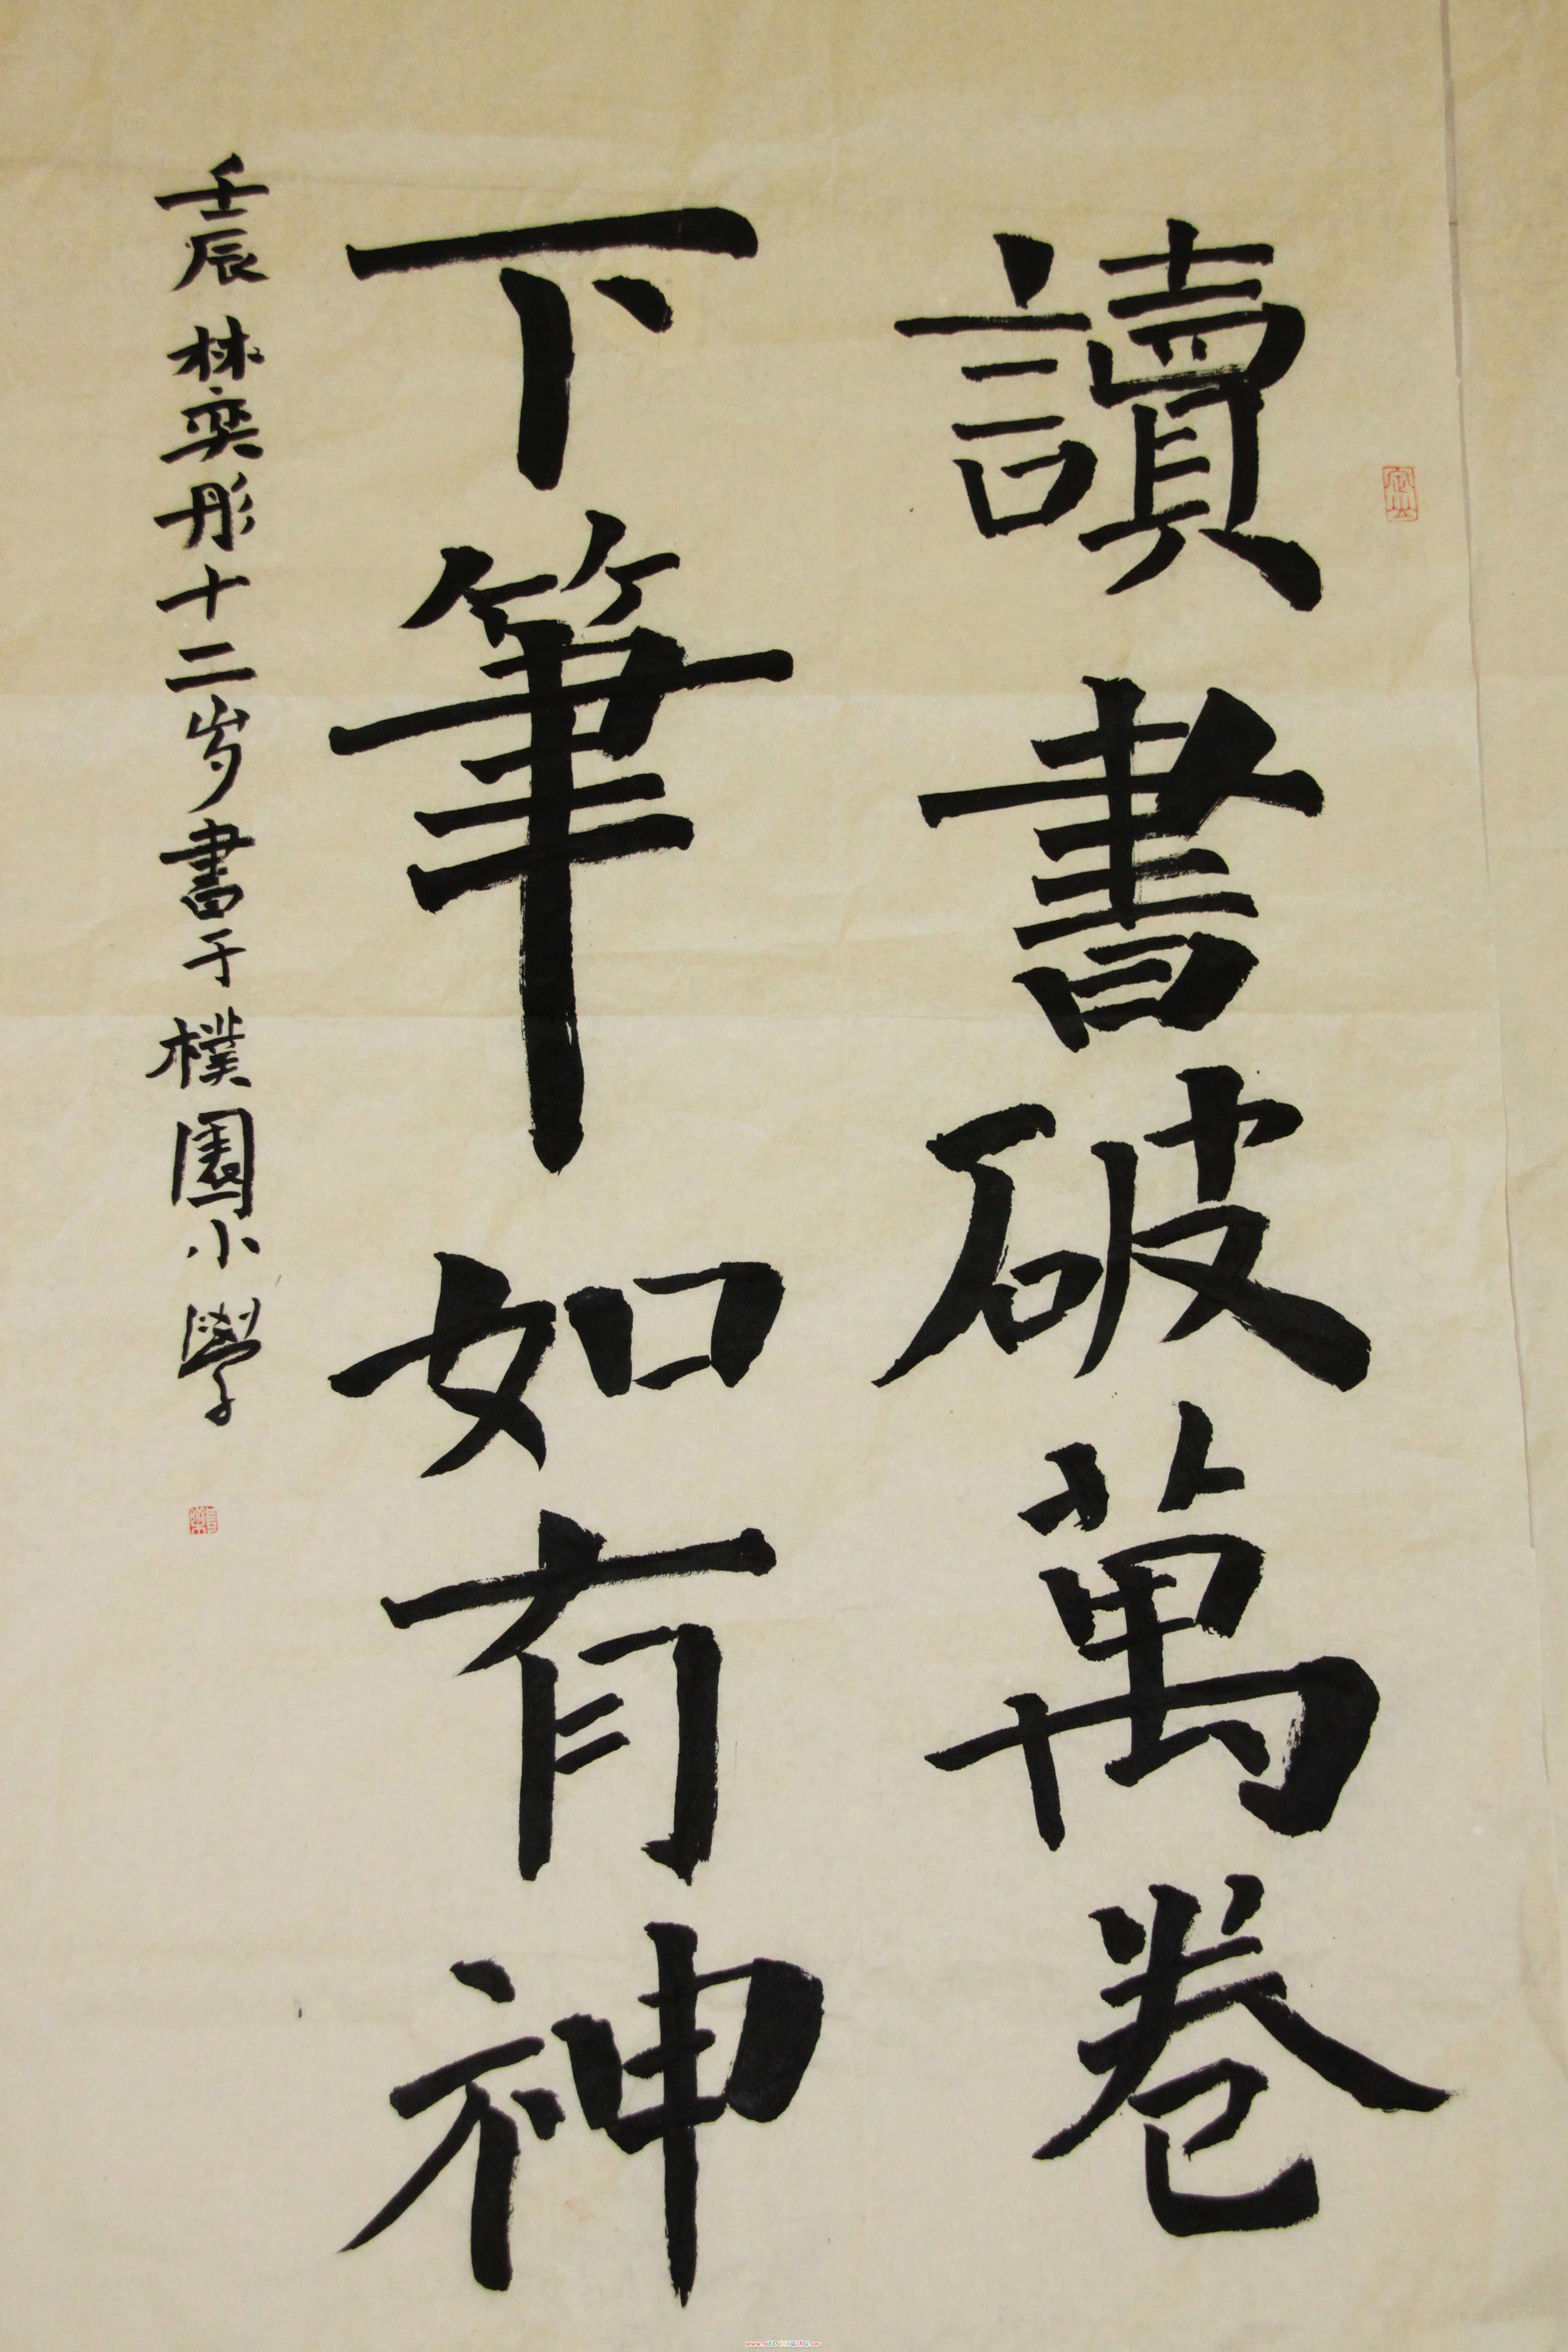 讀書破萬卷
下筆如有神
壬辰 林奕彤十二岁書于樸園小學